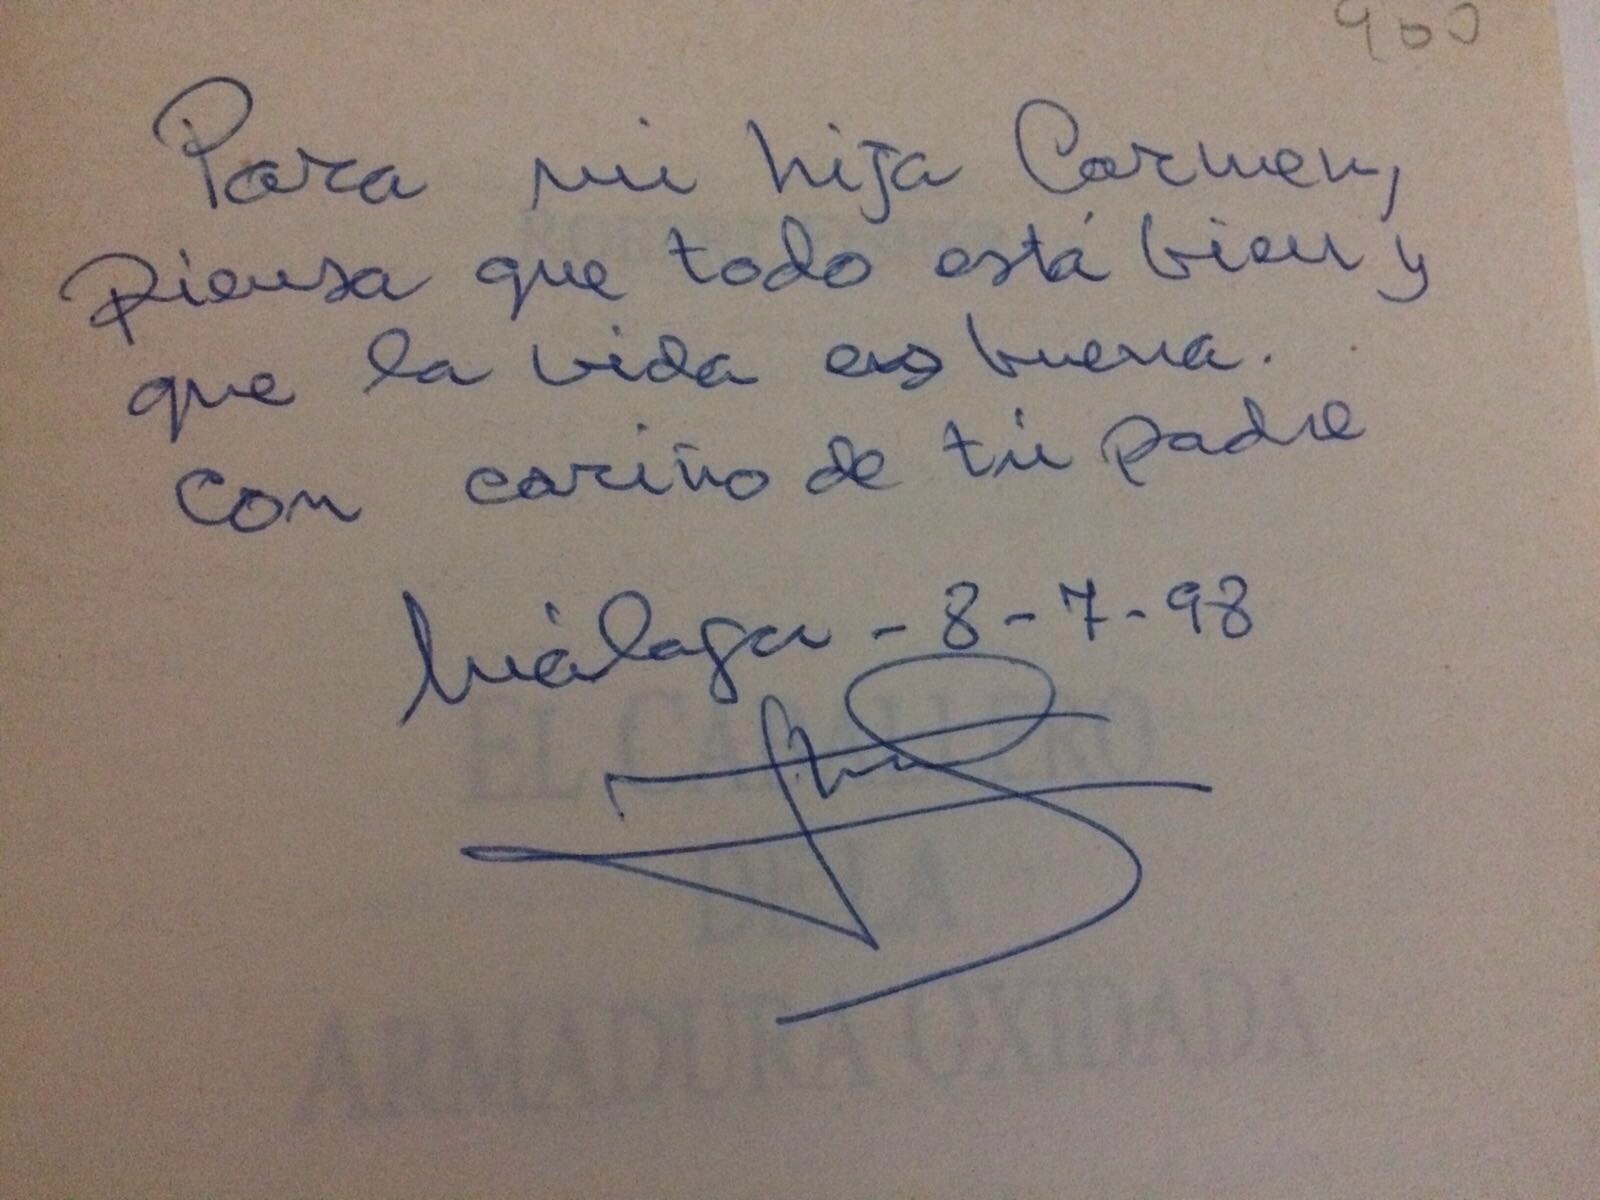 900
Para mi hija Carmen,
piensa que todo está bien y
que la vida es buena.
Con cariño de tú padre
Málaga - 8-7-98
EL CABALLERO
DE LA
ARMADURA OXIDADA